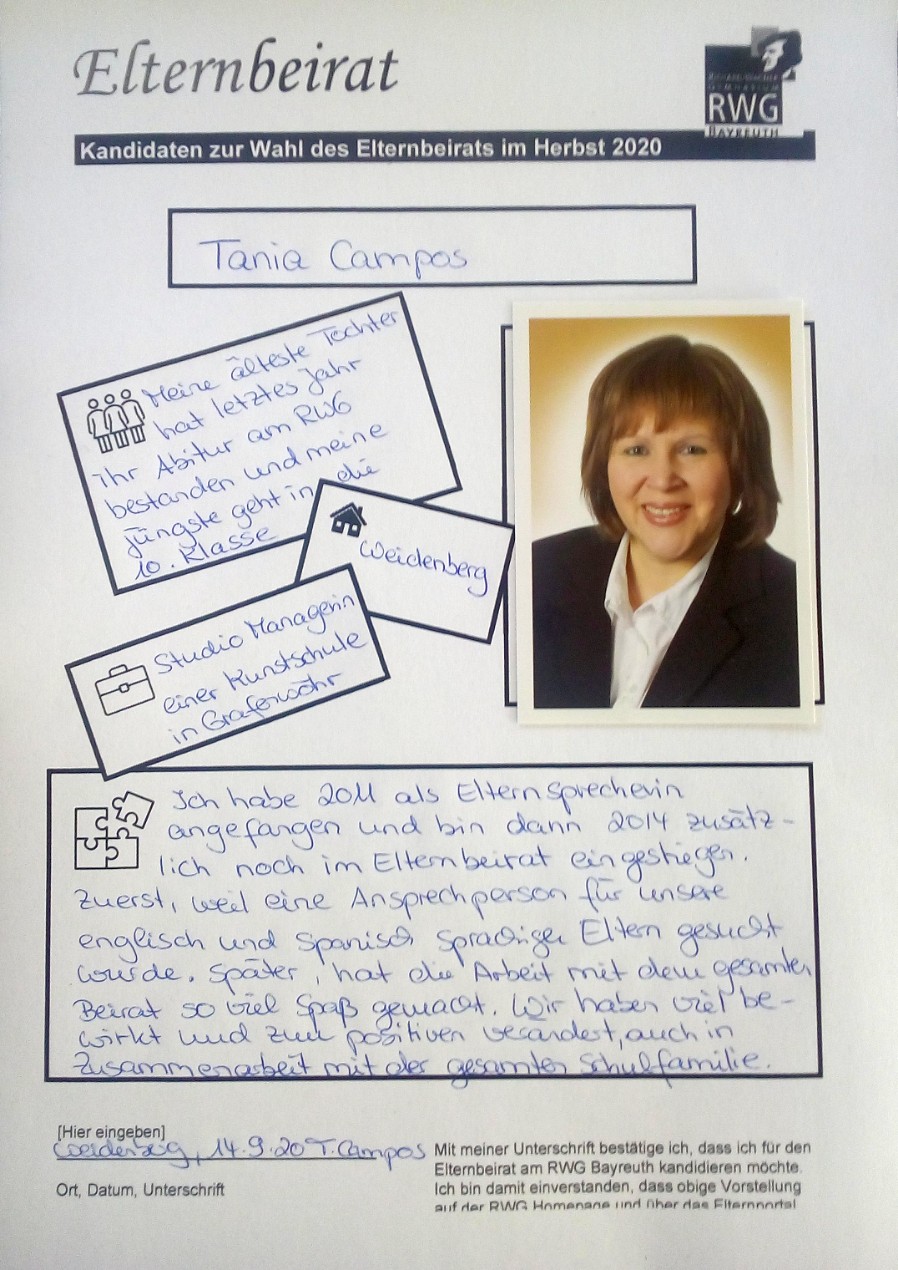 Elternbeirat
RICHARD-WAGNER
GYMNASIUM
RWG
BAYREUTH
Kandidaten zur Wahl des Elternbeirats im Herbst 2020
Tania Campos
Meine älteste Tochter
hat letztes Jahr
ihr Abitur am RWG
bestanden und meine
jüngste geht in die
10. Klasse
Weidenberg
Studio Managerin
einer Kunstschule
in Grafenwöhr
Ich habe 2011 als Elternsprecherin
angefangen und bin dann 2014 zusätz-
lich noch im Elternbeirat eingestiegen.
Zuerst, weil eine Ansprechperson für unsere
englisch und spanisch sprachigen Eltern gesucht
wurde. Später, hat die Arbeit mit dem gesamten
Beirat so viel Spaß gemacht. Wir haben viel be-
wirkt und zum positiven verändert, auch in
Zusammenarbeit mit der gesamten Schulfamilie.
[Hier eingeben]
Weidenberg, 14.9.20 T. Campos
Ort, Datum, Unterschrift
Mit meiner Unterschrift bestätige ich, dass ich für den
Elternbeirat am RWG Bayreuth kandidieren möchte.
Ich bin damit einverstanden, dass obige Vorstellung
auf der RWG Homepage und über das Elternportal